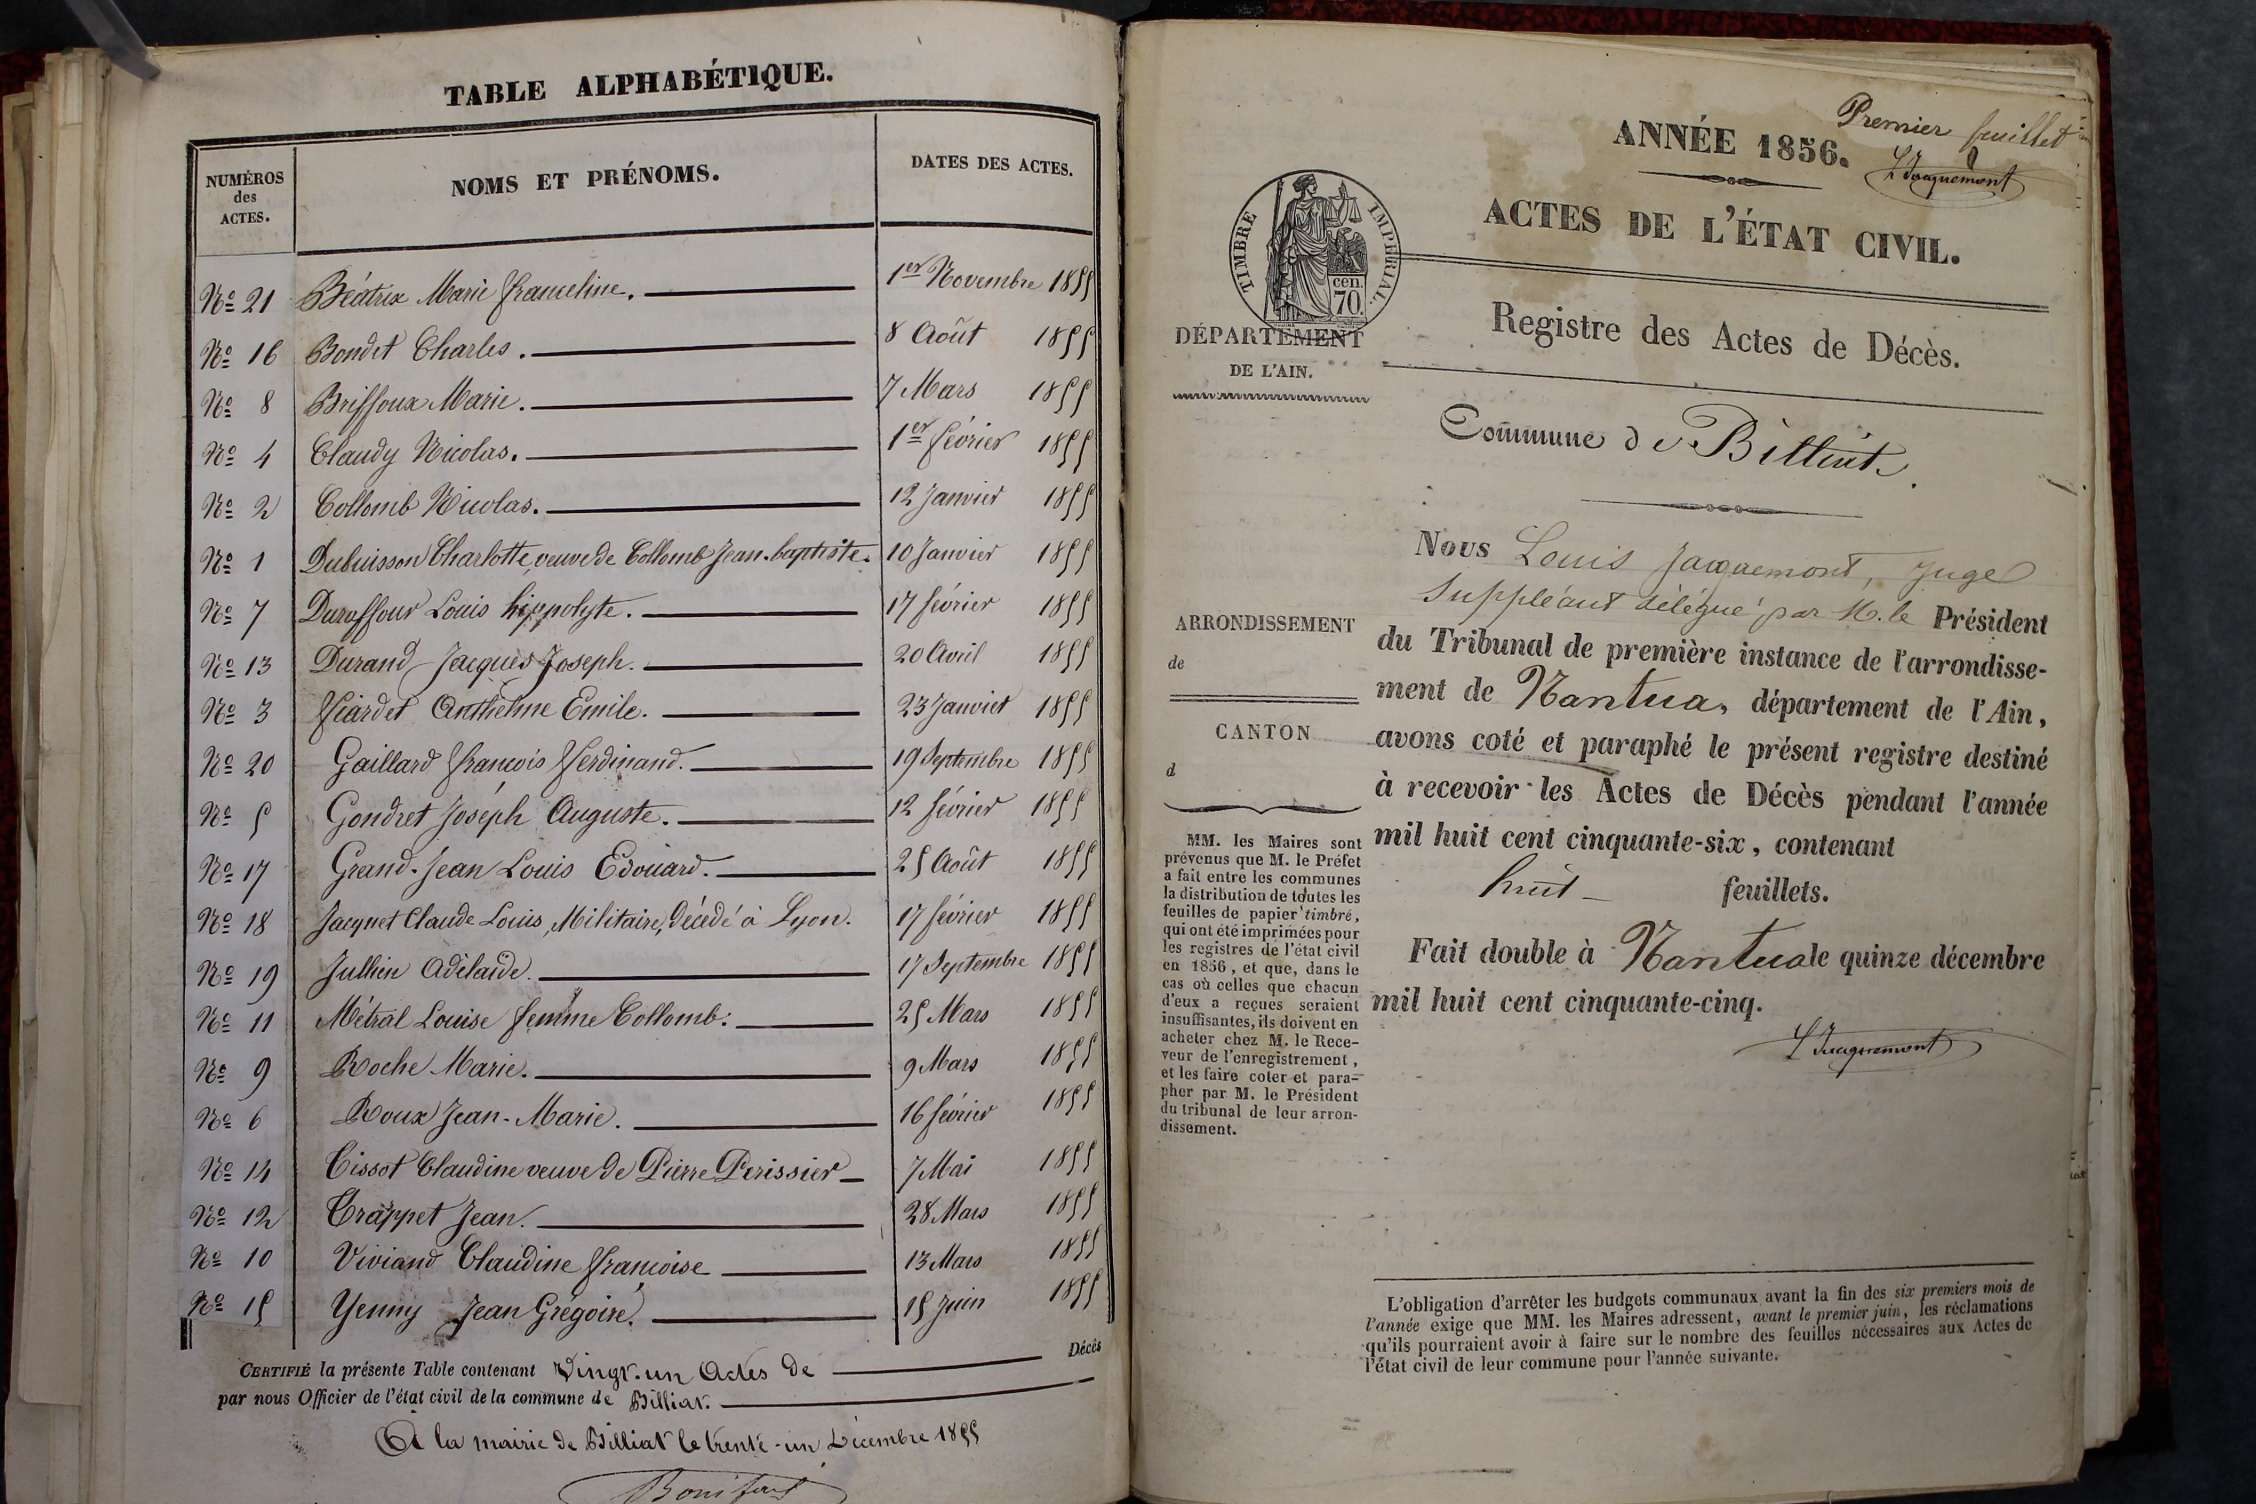 TABLE ALPHABÉTIQUE.
NUMÉROS des ACTES.
NOMS ET PRÉNOMS.
DATES DES ACTES.
No 21 Béatrix Marie Franceline. 1er Novembre 1855
No 16 Bondet Charles. 8 Août 1855
No 8 Briffoux Marie. 7 Mars 1855
No 4 Claudy Nicolas. 1er février 1855
No 2 Collomb Nicolas. 12 Janvier 1855
No 1 Dubuisson Charlotte, veuve de Collomb Jean-baptiste. 10 Janvier 1855
No 7 Duraffour Louis hippolyte. 17 février 1855
No 13 Durand Jacques Joseph. 20 Avril 1855
No 3 Fiardet Anthelme Emile. 23 Janvier 1855
No 20 Gaillard François Ferdinand. 19 Septembre 1855
No 5 Gondret Joseph Auguste. 12 février 1855
No 17 Grand-Jean Louis Edouard. 25 Août 1855
No 18 Jacquet Claude Louis, Militaire, décédé à Lyon. 17 février 1855
No 19 Jullien Adélaïde. 17 Septembre 1855
No 11 Métral Louise femme Collomb. 25 Mars 1855
No 9 Roche Marie. 9 Mars 1855
No 6 Roux Jean-Marie. 16 février 1855
No 14 Tissot Claudine veuve de Pierre Perissier 7 Mai 1855
No 12 Trappet Jean. 28 Mars 1855
No 10 Viviand Claudine Françoise 13 Mars 1855
No 15 Yenny Jean Grégoire. 15 Juin 1855
CERTIFIÉ la présente Table contenant Vingt-un Actes de Décès
par nous Officier de l'état civil de la commune de Billiat.
A la mairie de Billiat le trente-un Décembre 1855
Premier feuillet
L Jacquemont
ANNÉE 1856.
ACTES DE L'ÉTAT CIVIL.
TIMBRE IMPERIAL.
cen.
70.
DÉPARTEMENT
DE L'AIN.
Registre des Actes de Décès.
Commune de Billiat.
ARRONDISSEMENT
de
CANTON
d
MM. les Maires sont
prévenus que M. le Préfet
a fait entre les communes
la distribution de toutes les
feuilles de papier timbré,
qui ont été imprimées pour
les registres de l'état civil
en 1856, et que, dans le
cas où celles que chacun
d'eux a reçues seraient
insuffisantes, ils doivent en
acheter chez M. le Rece-
veur de l'enregistrement,
et les faire coter et para-
pher par M. le Président
du tribunal de leur arron-
dissement.
Nous Louis Jacquemont, Juge
Suppléant délégué par M. le Président
du Tribunal de première instance de l'arrondisse-
ment de Nantua, département de l'Ain,
avons coté et paraphé le présent registre destiné
à recevoir les Actes de Décès pendant l'année
mil huit cent cinquante-six, contenant
huit feuillets.
Fait double à Nantua le quinze décembre
mil huit cent cinquante-cinq.
L Jacquemont
L'obligation d'arrêter les budgets communaux avant la fin des six premiers mois de
l'année exige que MM. les Maires adressent, avant le premier juin, les réclamations
qu'ils pourraient avoir à faire sur le nombre des feuilles nécessaires aux Actes de
l'état civil de leur commune pour l'année suivante.